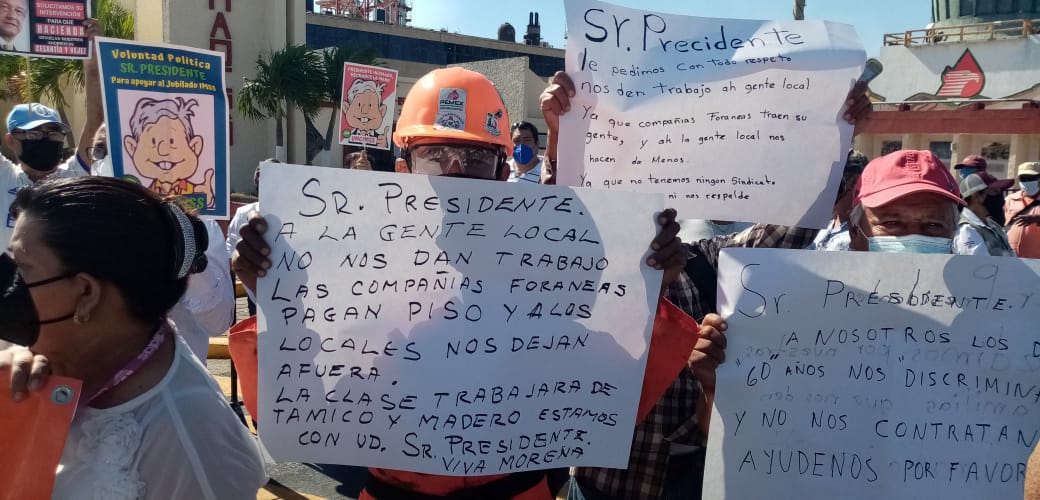 SOLICITAMOS SU
INTERVENCIÓN
PARA QUE
HACIENDA
CESANTÍA Y VEJEZ
Voluntad Politica
SR. PRESIDENTE
Para apoyar al Jubilado IMSS
PEMEX
Sr. Precidente
le pedimos con todo respeto
nos den trabajo ah gente local
Ya que compañias Foraneas traen su
gente, y ah la gente local nos
hacen de Menos.
Ya que no tenemos ningon Sindicato
ni nos respalde
SR. PRESIDENTE.
A LA GENTE LOCAL
NO NOS DAN TRABAJO
LAS COMPAÑÍAS FORANEAS
PAGAN PISO Y ALOS
LOCALES NOS DEJAN
AFUERA.
LA CLASE TRABAJARA DE
TAMICO Y MADERO ESTAMOS
CON UD. SR. PRESIDENTE.
VIVA MORENA
Sr. PRESIDENTE. Y
A NOSOTROS LOS D
"60" AÑOS NOS DISCRIMINA
Y NO NOS CONTRATAN
AYUDENOS POR FAVOR